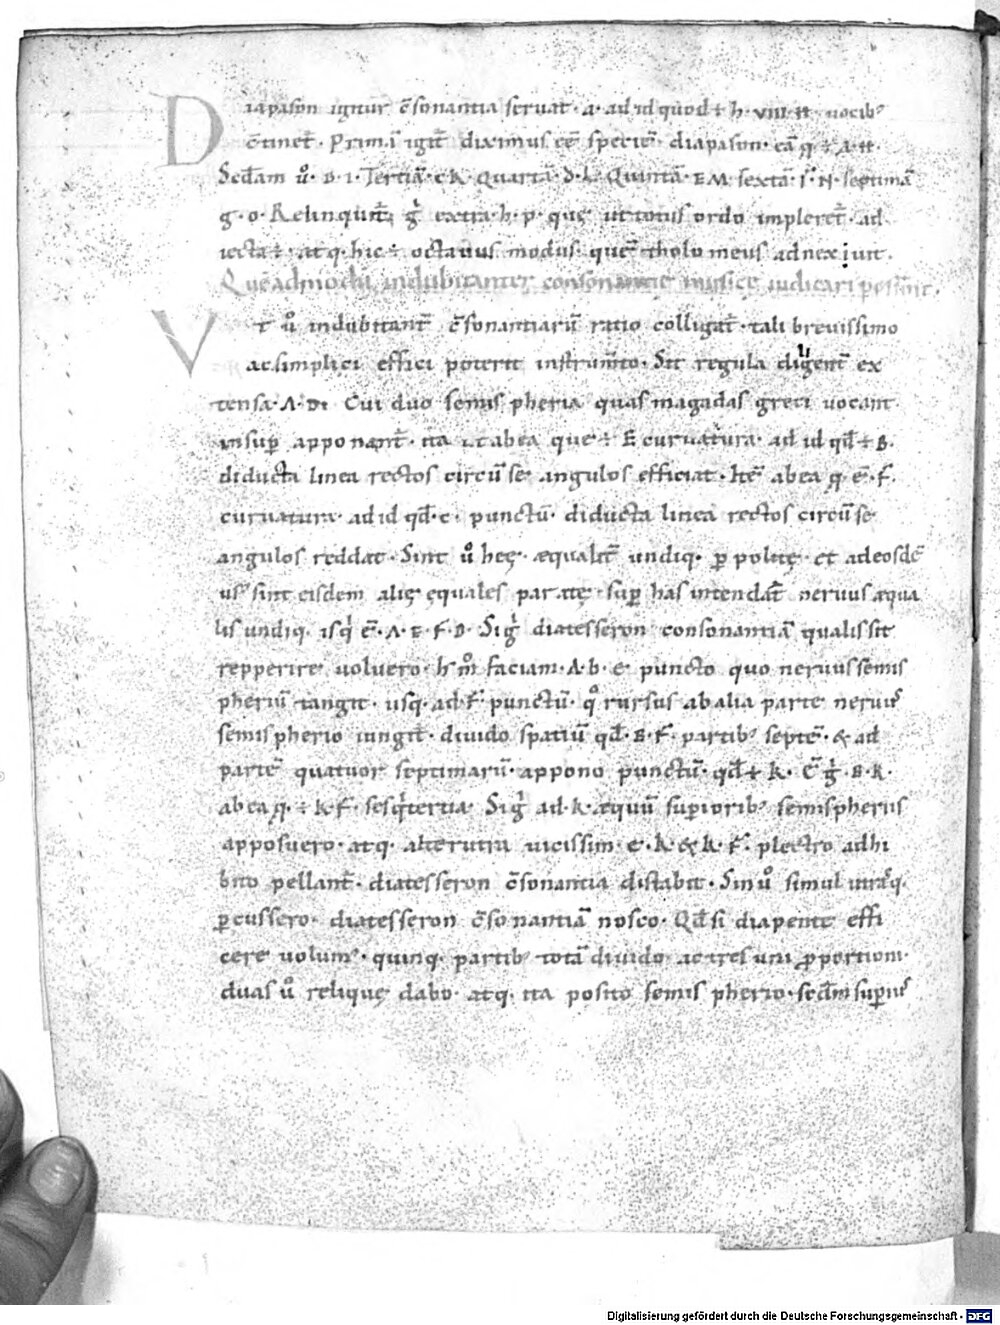 Diapason igitur c̄sonantia seruat · a · ad id quod ÷ h · VIII · n̄ uocib⁹
c̄tinet̄ · Primā igit̄ diximus ēē speciē diapason · eā q̨ ÷ A · H ·
Sc̄dam u̾ · B · I · Tertiā · C K · Quartā · D · L · Quintā · E M · sextā · F · N · septimā
g · o · Relinquit̄ g̾ extra · h · p · quę ut totus ordo impleret̄ · ad
iecta ÷ · atq · hic ÷ octauus modus · quē tholomeus adnexiuit ·
Quēadmodū indubitanter consonantię musicę iudicari possint ·
Vt u̾ indubitant̄ c̄sonantiarū ratio colligat̄ · tali breuissimo
ac simplici effici poterit instrum̄to · Sit regula diligent̄ ex
tensa · A · D · Cui duo semispheria quas magadas greci uocant
insup̄ apponant̄ · ita ut ab ea que ÷ E curuatura · ad id qd̄ ÷ B ·
diducta linea rectos circū se angulos efficiat · Itē ab ea q̨ ē · F ·
curuatura · ad id qd̄ · c · punctū · diducta linea rectos circū se
angulos reddat · Sint u̾ hęc · æqualit̄ undiq · p̱ polite · et ad eosdē
us⁹ sint eisdem alię equales paratę · sup̄ has intendat̄ neruus æqua
lis undiq · isq̄ ē · A · E · F · D · Sig̾ diatesseron consonantiā qualis sit
repperire uoluero · h̾ m̊ faciam · A b · e · puncto quo neruus semis
pheriū tangit · usq · ad · F · punctū · q̊ rursus ab alia parte neruus
semispherio iungit̄ · diuido spatiū qd̄ · E · F · partib⁹ septē · & ad
partē quatuor septimarū · appono punctū · qd̄ ÷ K · C̄ g̾ · E · K ·
ab ea q̨ · ÷ K F · sesq̄tertia · Sig̾ ad · K · æquū superiorib⁹ semispheriis
apposuero · atq · alterutra uicissim · e · k · & k · F · plectro adhi
bito pellant̄ · diatesseron c̄sonantia distabit · Sin u̾ simul utrāq ·
p̱cussero · diatesseron c̄sonantiā nosco · Qd̄ si diapente effi
cere uolum⁹ · quinq · partib⁹ totā diuido · ac tres uni proportioni ·
duas u̾ reliquę dabo · atq · ita posito semispherio · scd̄m superius